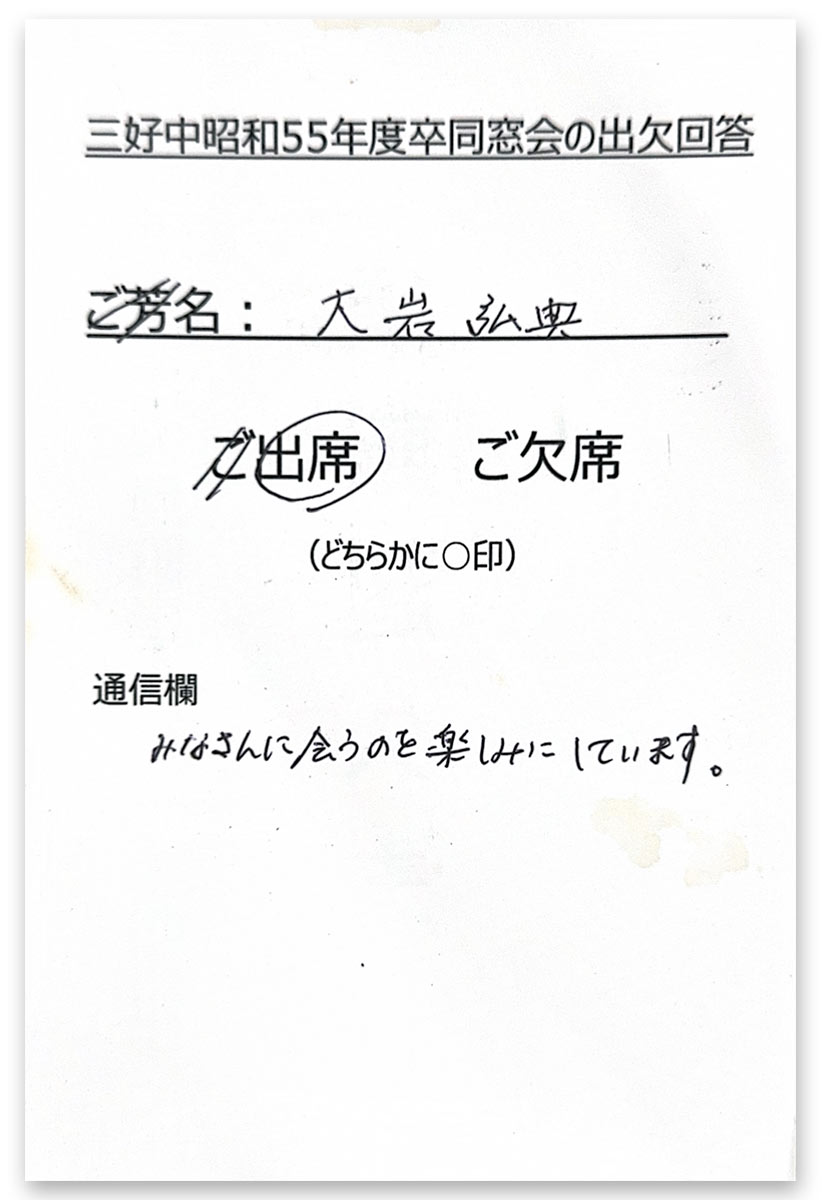 三好中昭和55年度卒同窓会の出欠回答
ご芳名： 大岩 弘典
ご出席 ご欠席
（どちらかに○印）
通信欄
みなさんに会うのを楽しみにしています。